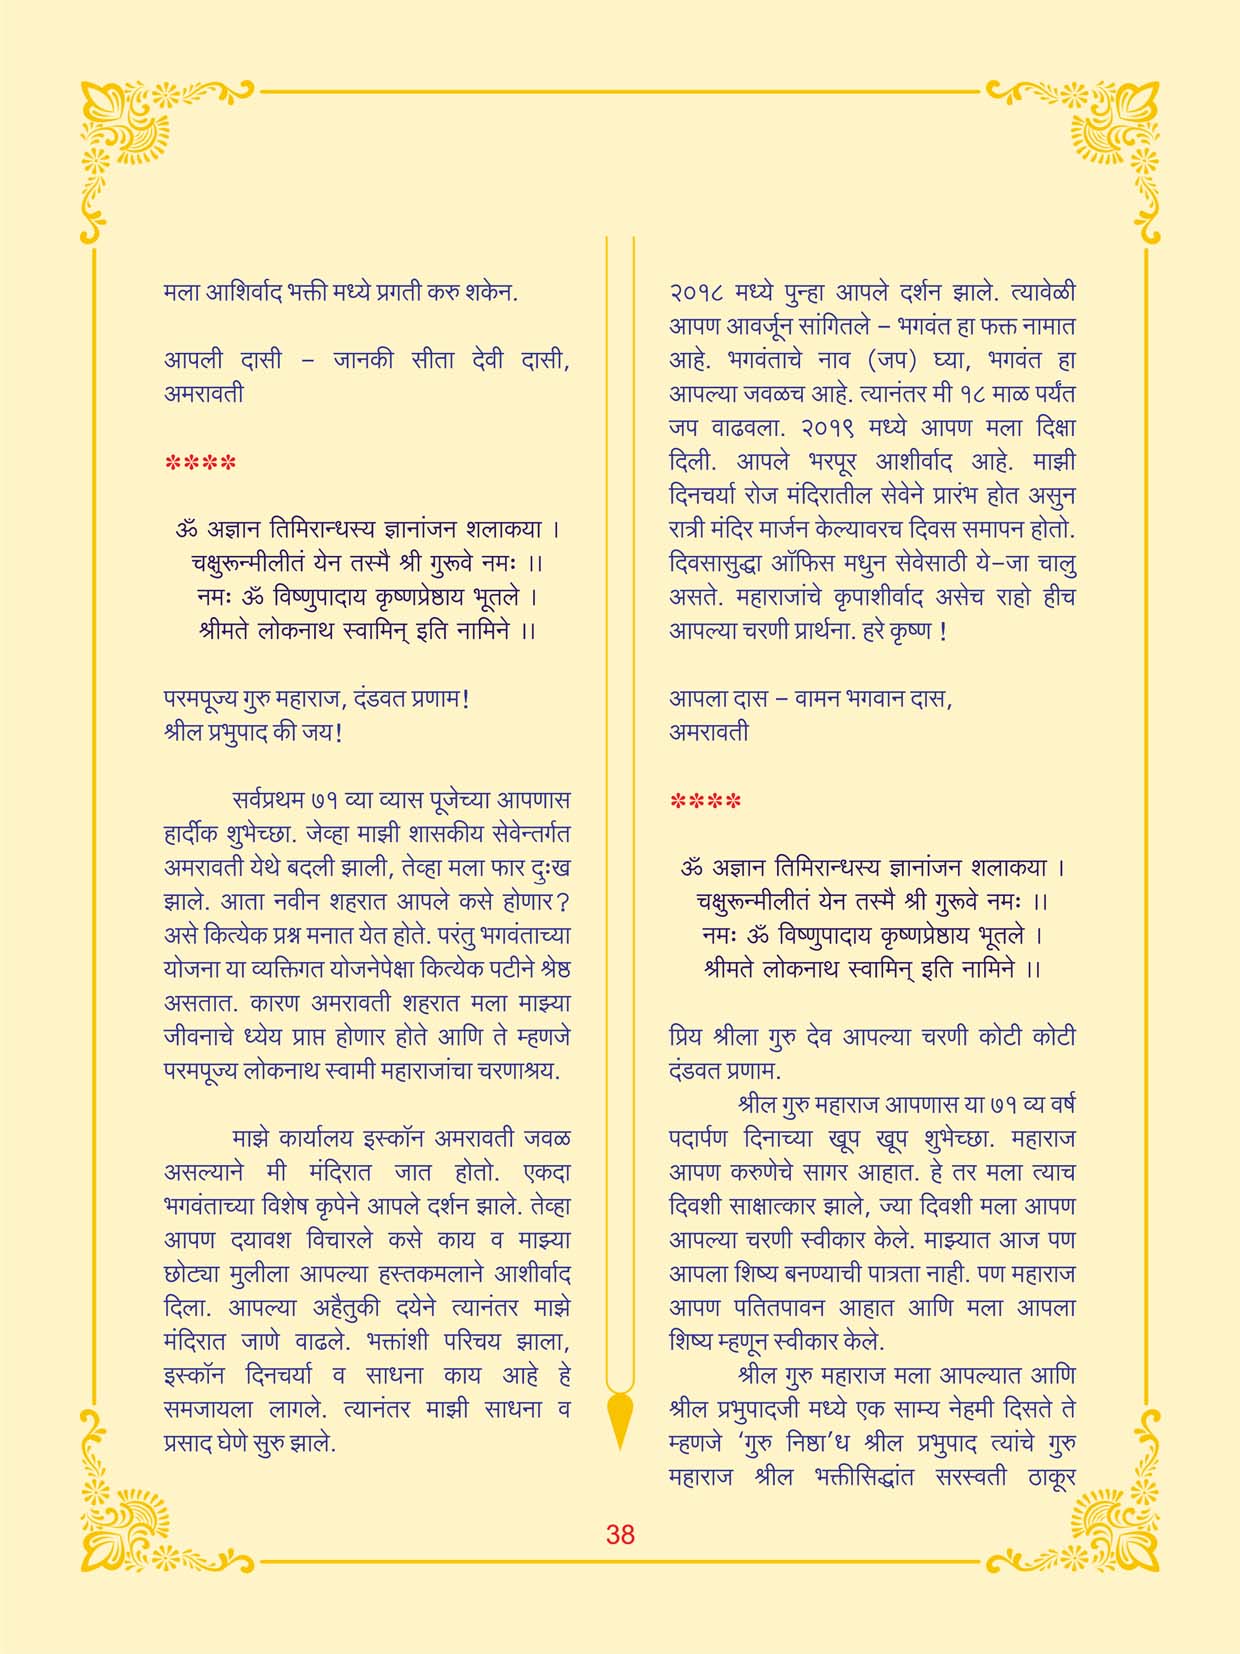 मला आशिर्वाद भक्ती मध्ये प्रगती करु शकेन.
आपली दासी – जानकी सीता देवी दासी,
अमरावती
****
ॐ अज्ञान तिमिरान्धस्य ज्ञानांजन शलाकया ।
चक्षुरून्मीलीतं येन तस्मै श्री गुरूवे नमः ।।
नमः ॐ विष्णुपादाय कृष्णप्रेष्ठाय भूतले ।
श्रीमते लोकनाथ स्वामिन् इति नामिने ।।
परमपूज्य गुरु महाराज, दंडवत प्रणाम!
श्रील प्रभुपाद की जय!
सर्वप्रथम ७१ व्या व्यास पूजेच्या आपणास
हार्दीक शुभेच्छा. जेव्हा माझी शासकीय सेवेन्तर्गत
अमरावती येथे बदली झाली, तेव्हा मला फार दुःख
झाले. आता नवीन शहरात आपले कसे होणार?
असे कित्येक प्रश्न मनात येत होते. परंतु भगवंताच्या
योजना या व्यक्तिगत योजनेपेक्षा कित्येक पटीने श्रेष्ठ
असतात. कारण अमरावती शहरात मला माझ्या
जीवनाचे ध्येय प्राप्त होणार होते आणि ते म्हणजे
परमपूज्य लोकनाथ स्वामी महाराजांचा चरणाश्रय.
माझे कार्यालय इस्कॉन अमरावती जवळ
असल्याने मी मंदिरात जात होतो. एकदा
भगवंताच्या विशेष कृपेने आपले दर्शन झाले. तेव्हा
आपण दयावश विचारले कसे काय व माझ्या
छोट्या मुलीला आपल्या हस्तकमलाने आशीर्वाद
दिला. आपल्या अहैतुकी दयेने त्यानंतर माझे
मंदिरात जाणे वाढले. भक्तांशी परिचय झाला,
इस्कॉन दिनचर्या व साधना काय आहे हे
समजायला लागले. त्यानंतर माझी साधना व
प्रसाद घेणे सुरु झाले.
२०१८ मध्ये पुन्हा आपले दर्शन झाले. त्यावेळी
आपण आवर्जून सांगितले – भगवंत हा फक्त नामात
आहे. भगवंताचे नाव (जप) घ्या, भगवंत हा
आपल्या जवळच आहे. त्यानंतर मी १८ माळ पर्यंत
जप वाढवला. २०१९ मध्ये आपण मला दिक्षा
दिली. आपले भरपूर आशीर्वाद आहे. माझी
दिनचर्या रोज मंदिरातील सेवेने प्रारंभ होत असुन
रात्री मंदिर मार्जन केल्यावरच दिवस समापन होतो.
दिवसासुद्धा ऑफिस मधुन सेवेसाठी ये–जा चालु
असते. महाराजांचे कृपाशीर्वाद असेच राहो हीच
आपल्या चरणी प्रार्थना. हरे कृष्ण !
आपला दास – वामन भगवान दास,
अमरावती
****
ॐ अज्ञान तिमिरान्धस्य ज्ञानांजन शलाकया ।
चक्षुरून्मीलीतं येन तस्मै श्री गुरूवे नमः ।।
नमः ॐ विष्णुपादाय कृष्णप्रेष्ठाय भूतले ।
श्रीमते लोकनाथ स्वामिन् इति नामिने ।।
प्रिय श्रीला गुरु देव आपल्या चरणी कोटी कोटी
दंडवत प्रणाम.
श्रील गुरु महाराज आपणास या ७१ व्य वर्ष
पदार्पण दिनाच्या खूप खूप शुभेच्छा. महाराज
आपण करुणेचे सागर आहात. हे तर मला त्याच
दिवशी साक्षात्कार झाले, ज्या दिवशी मला आपण
आपल्या चरणी स्वीकार केले. माझ्यात आज पण
आपला शिष्य बनण्याची पात्रता नाही. पण महाराज
आपण पतितपावन आहात आणि मला आपला
शिष्य म्हणून स्वीकार केले.
श्रील गुरु महाराज मला आपल्यात आणि
श्रील प्रभुपादजी मध्ये एक साम्य नेहमी दिसते ते
म्हणजे ‘गुरु निष्ठा’ध श्रील प्रभुपाद त्यांचे गुरु
महाराज श्रील भक्तीसिद्धांत सरस्वती ठाकूर
38